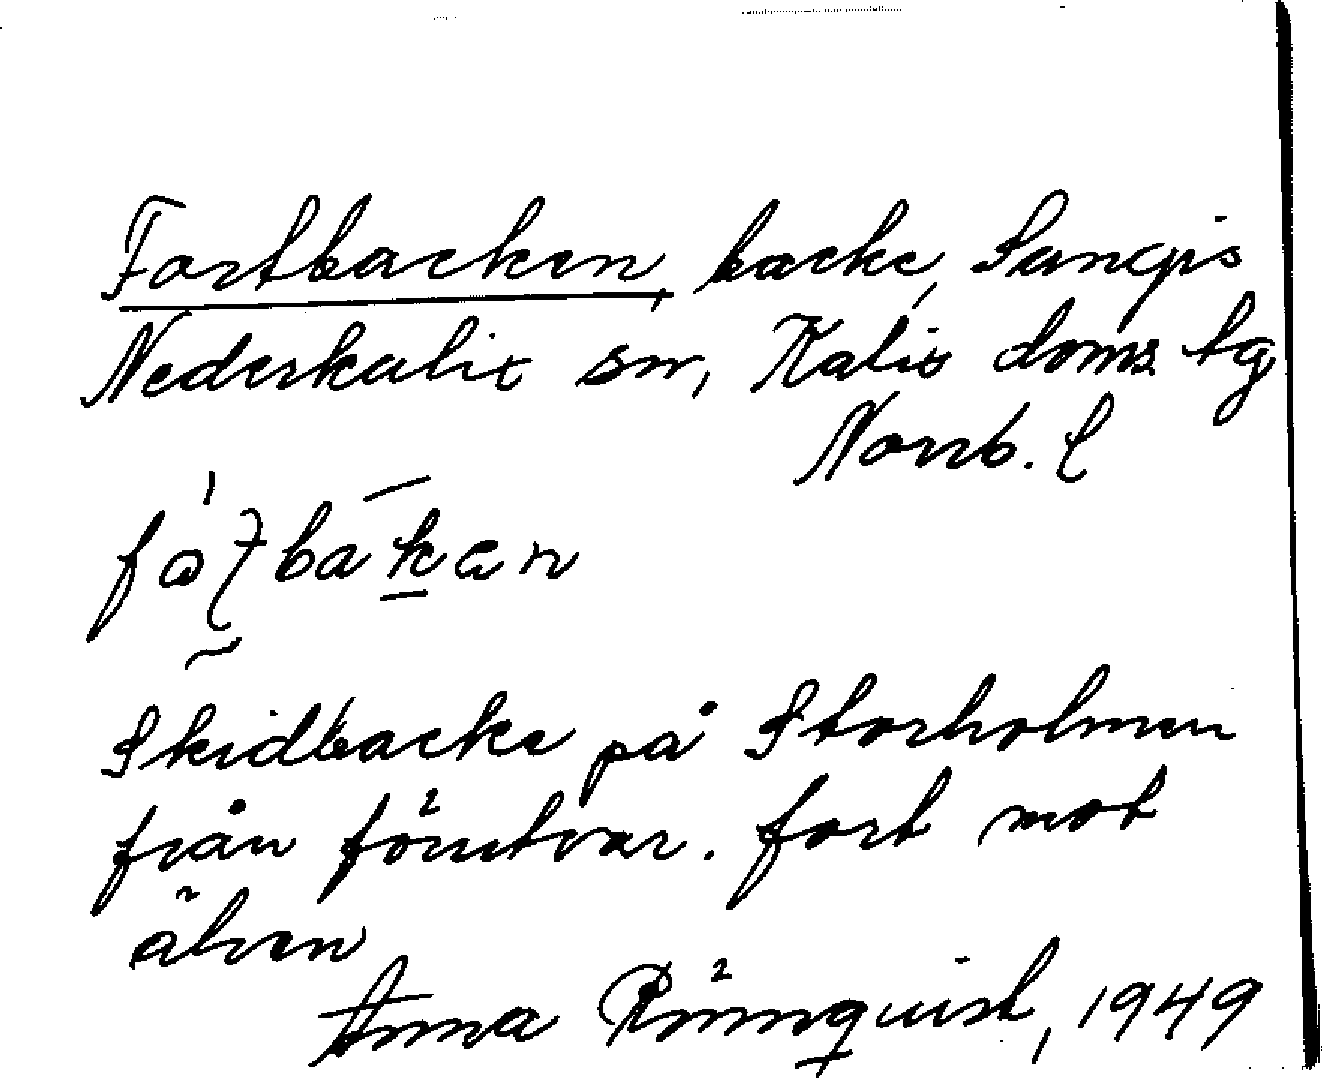 Fortbacken, backe, Sangis
Nederkalix sn, Kalix doms. tg
Norrb. l
Skidbacke på Storholmen
från förutvar. fort mot
älven
Anna Rönnquist, 1949